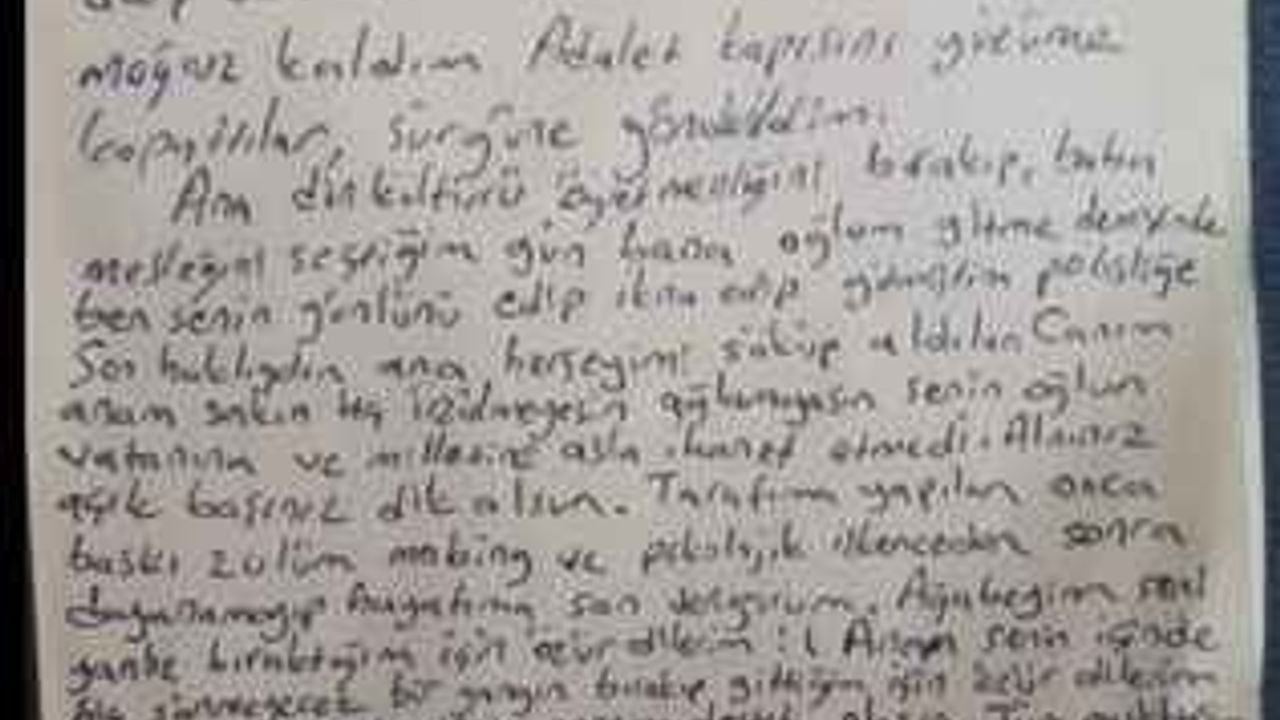 mağruz kaldım Adalet kapısını yüzüme
kapattılar, sürgüne gönderildim.
Ana din kültürü öğretmenliğini bırakıp, bütün
mesleğini seçtiğim gün bana oğlum gitme demiştin
ben senin gönlünü edip ikna edip gelmiştim polisliğe
Sen haklıydın ana herşeyimi söküp aldılar Canım
anam sakın hiç üzülmeyesin ağlamayasın senin oğlun
vatanına ve milletine asla ihanet etmedi. Alnınız
açık başınız dik olsun. Tarafıma yapılan onca
baskı zulüm mobing ve psikolojik işkenceden sonra
dayanamayıp hayatıma son veriyorum. Ağabeyim seni
yanlız bıraktığım için özür dilerim :( Anam senin içinde
hiç sönmeyecek bir yangın bırakıp gittiğim için özür dilerim